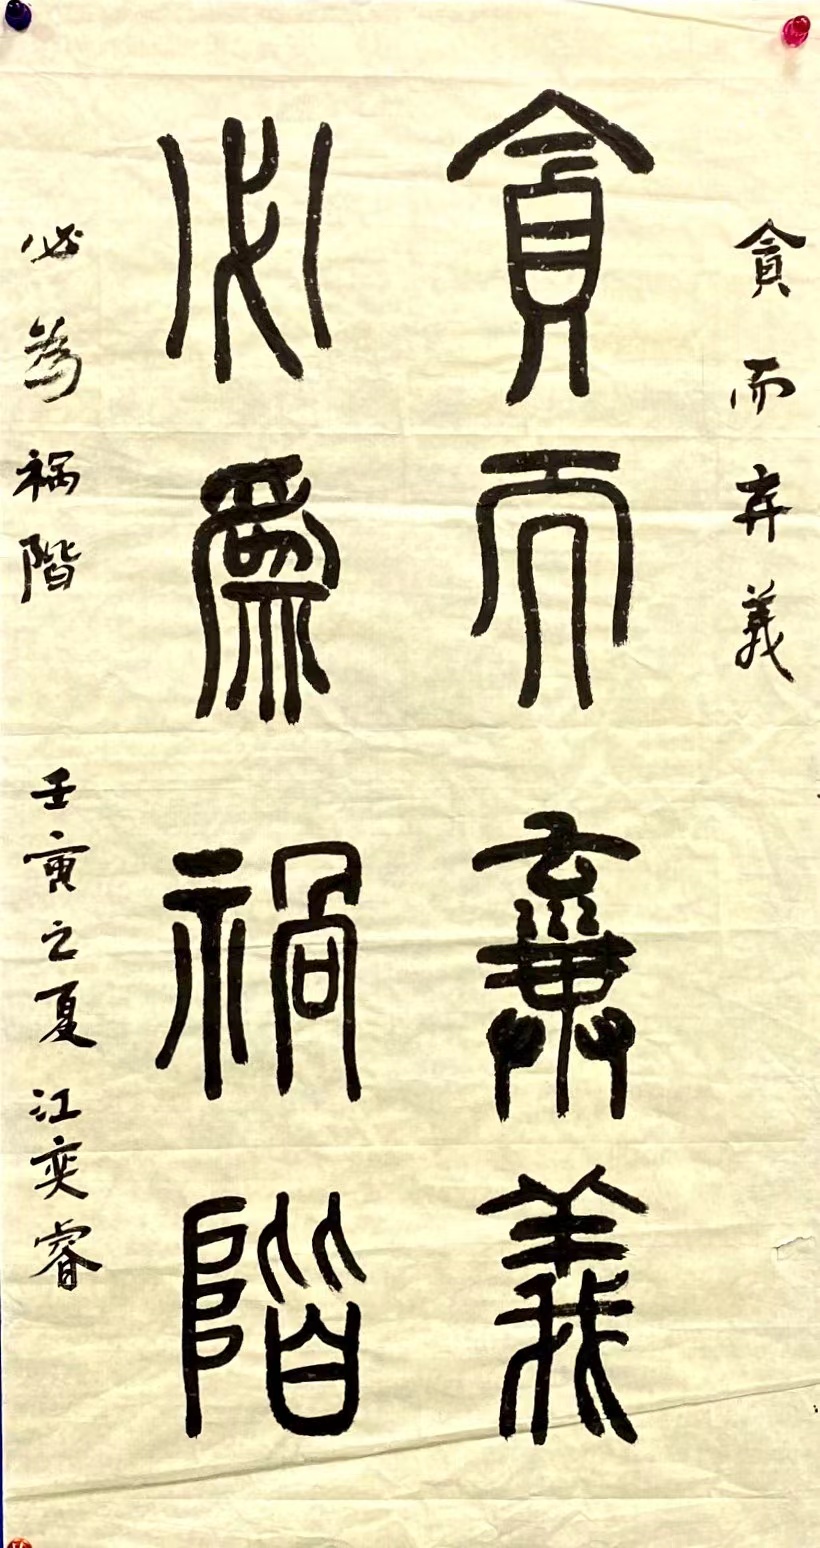 貪而弃義
貪而棄義
必爲禍階
必為禍階 壬寅之夏 江奕睿